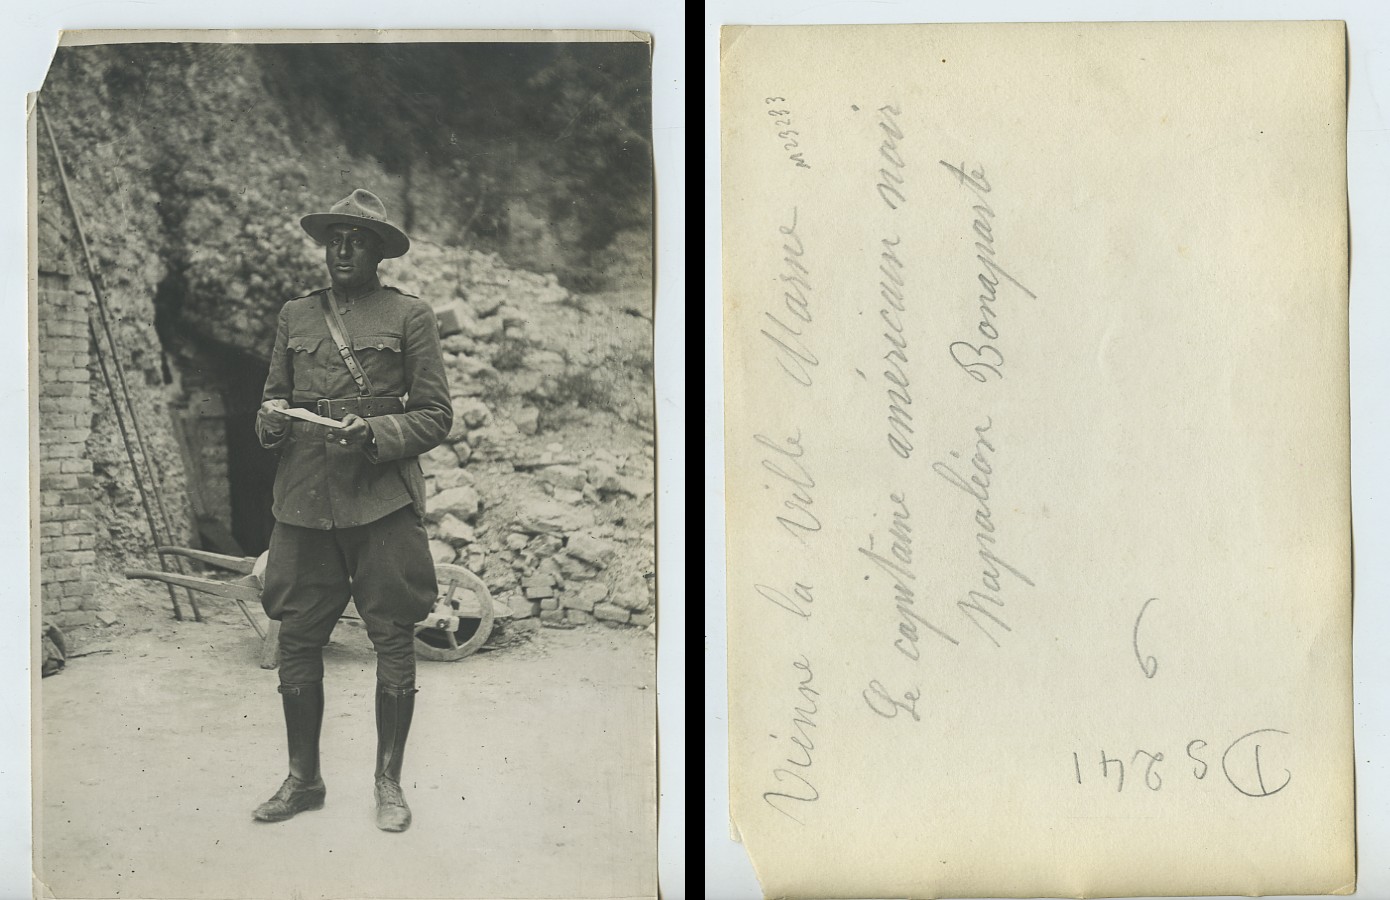 Vienne la Ville Marne M23233
Le capitaine américain noir
Napoléon Bonaparte
6
D S 241